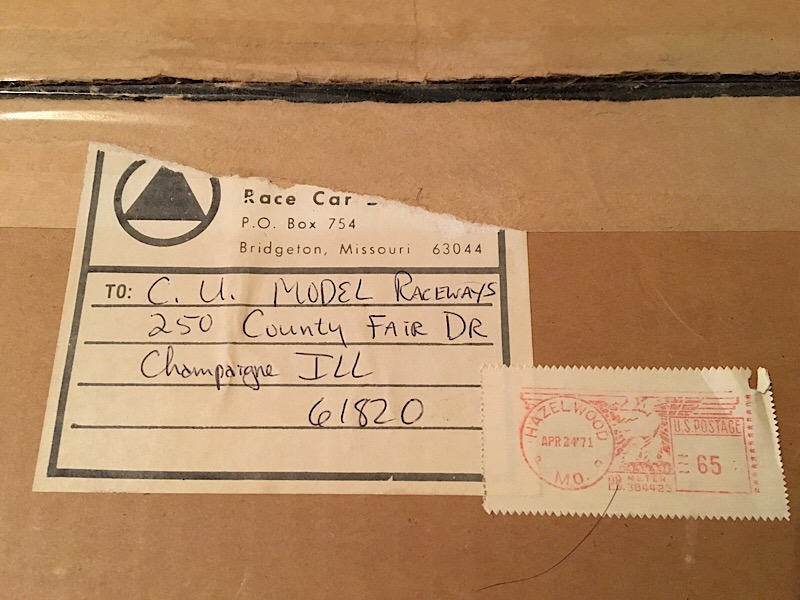 Race Car
P.O. Box 754
Bridgeton, Missouri 63044
TO: C. U. MODEL RACEWAYS
250 County FAIR DR
Champaigne ILL
61820
HAZELWOOD
APR 24 '71
MO.
U.S. POSTAGE
65
PB METER
384423